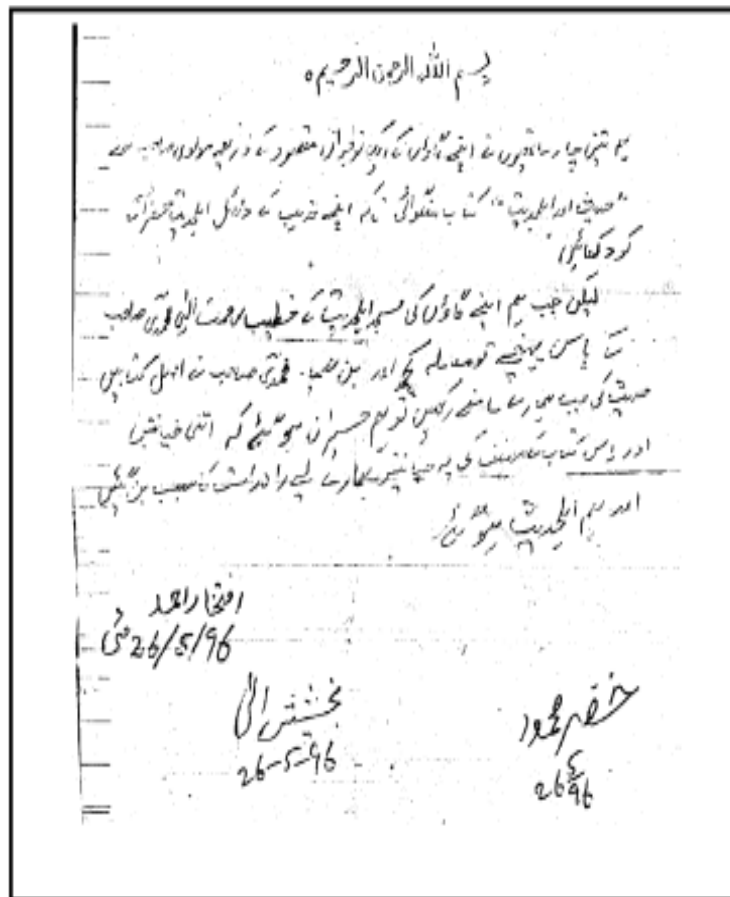 بسم اللہ الرحمن الرحیم ہ
ہم تین چار ساتھیوں نے اپنے گاؤں کے ایک نوجوان مقصود کے ذریعہ مولوی صاحب سے
"حدیث اور اہلحدیث" کتاب منگوائی تاکہ اپنے مذہب کے دلائل اہلحدیث حضرات
کو دکھائیں
لیکن جب ہم اپنے گاؤں کی مسجد اہلحدیث کے خطیب رحمت الٰہی صاحب
کے پاس پہنچے تو معاملہ کچھ اور بن گیا۔ صاحب نے اصل کتابیں
حدیث کی جب ہمارے سامنے رکھیں تو ہم حیران ہو گئے کہ اتنی خیانتیں
اور اس کتاب کے مصنف کی یہ خیانتیں ہمارے لیے راہ راست کا سبب بن گئیں
اور ہم اہلحدیث ہو گئے
افتخار احمد
26/5/96 مئی
بخشش الٰہی
26-5-96
خضر محمود
26 5 96